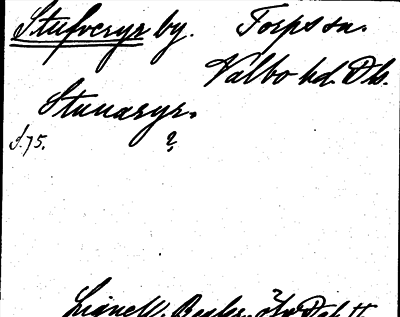 Stufveryr by. Torps sn.
Valbo hd. Dls.
Stunaryr.
S. 75. ?
Lignell, Beskr. öfv. Dal II